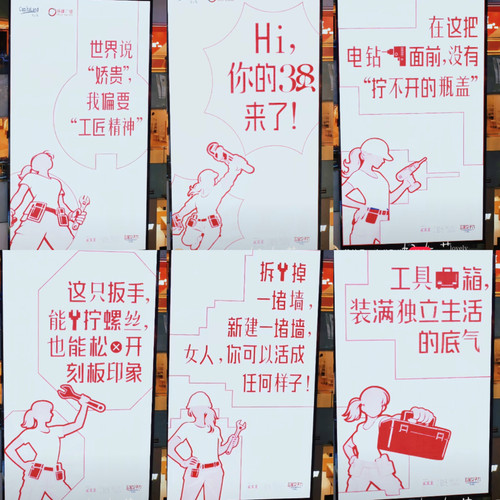 世界说
“娇贵”,
我偏要
“工匠精神”
Hi,
你的38
来了!
在这把
电钻面前,没有
“拧不开的瓶盖”
这只扳手,
能拧螺丝,
也能松开
刻板印象
拆掉
一堵墙,
新建一堵墙,
女人,你可以活成
任何样子!
工具箱,
装满独立生活
的底气